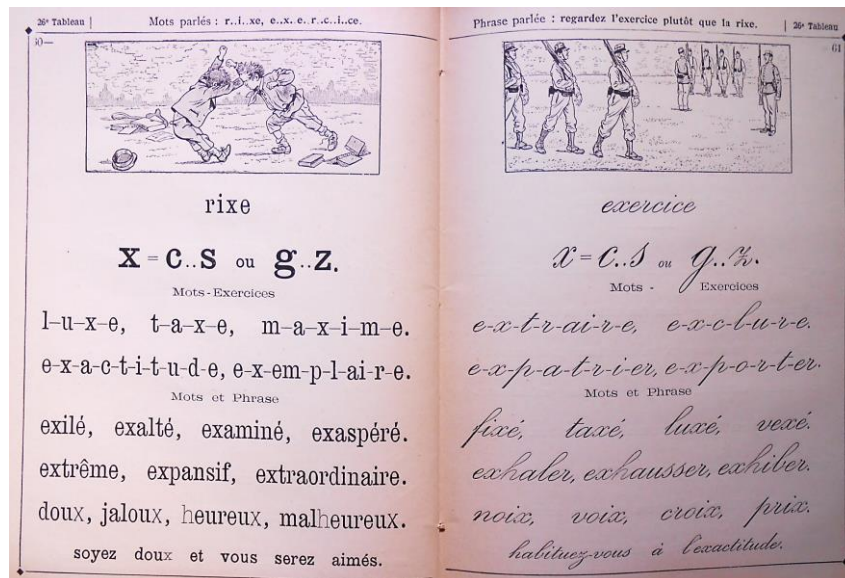 26e Tableau | Mots parlés : r..i..xe, e..x..e..r..c..i..ce.
60—
rixe
x = c..s ou g..z.
Mots-Exercices
l-u-x-e, t-a-x-e, m-a-x-i-m-e.
e-x-a-c-t-i-t-u-d-e, e-x-em-p-l-ai-r-e.
Mots et Phrase
exilé, exalté, examiné, exaspéré.
extrême, expansif, extraordinaire.
doux, jaloux, heureux, malheureux.
soyez doux et vous serez aimés.
Phrase parlée : regardez l'exercice plutôt que la rixe. | 26e Tableau
61
exercice
x = c..s ou g..z.
Mots - Exercices
e-x-t-r-ai-r-e, e-x-c-l-u-r-e.
e-x-p-a-t-r-i-er, e-x-p-o-r-t-er.
Mots et Phrase
fixé, taxé, luxé, vexé.
exhaler, exhausser, exhiber.
noix, voix, croix, prix.
habituez-vous à l'exactitude.